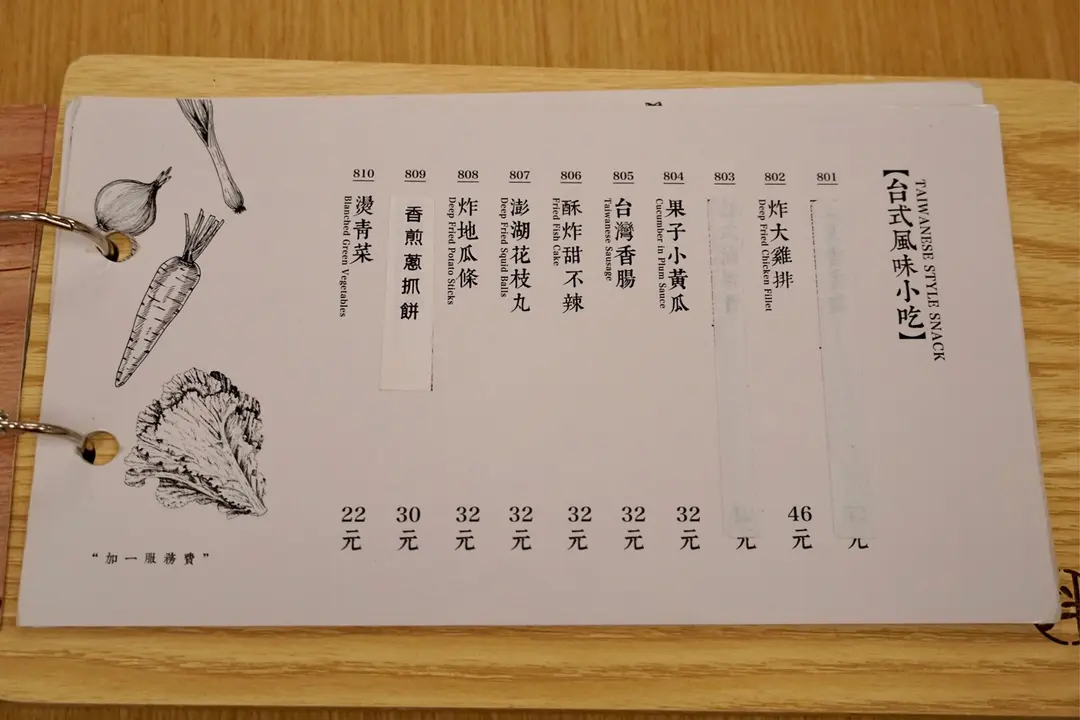 【台式風味小吃】
TAIWANESE STYLE SNACK
801
元
802
炸大雞排
Deep Fried Chicken Fillet
46
元
803
元
804
果子小黃瓜
Cucumber in Plum Sauce
32
元
805
台灣香腸
Taiwanese Sausage
32
元
806
酥炸甜不辣
Fried Fish Cake
32
元
807
澎湖花枝丸
Deep Fried Squid Balls
32
元
808
炸地瓜條
Deep Fried Potato Sticks
32
元
809
香煎蔥抓餅
30
元
810
燙青菜
Blanched Green Vegetables
22
元
“加一服務費”